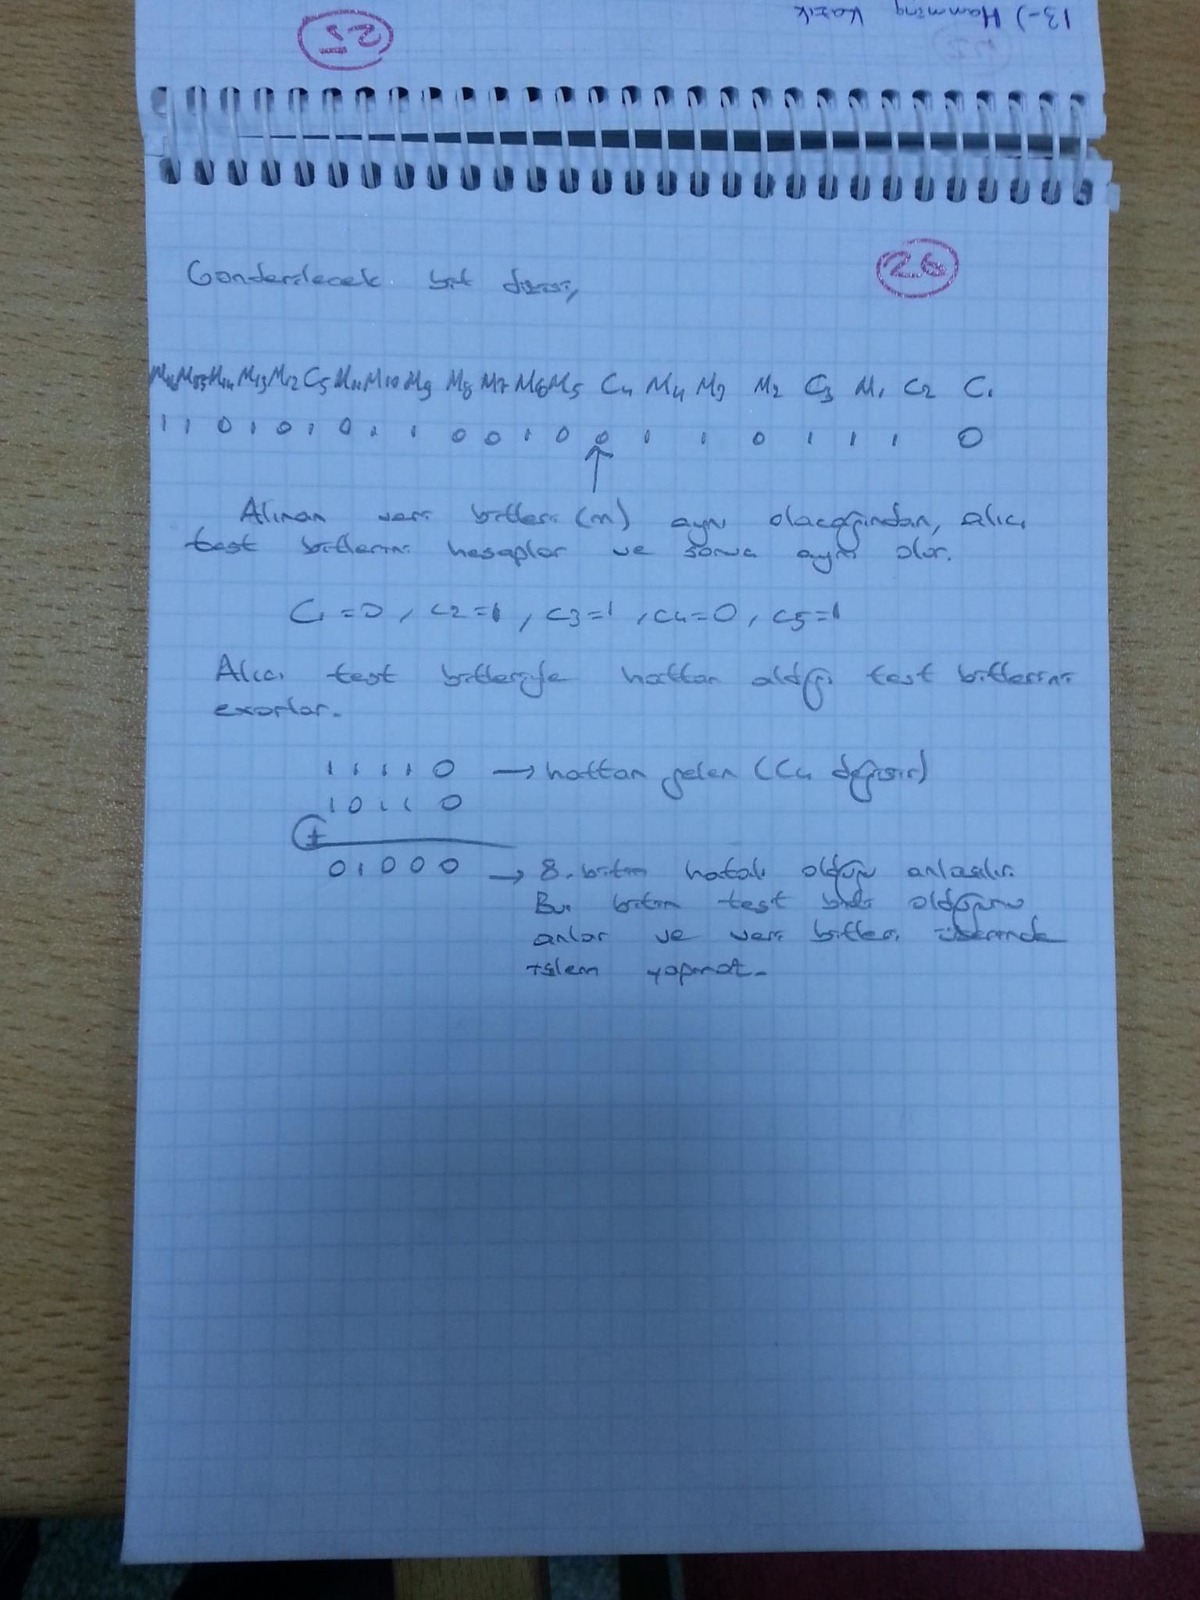 13-) Hamming Kazık
25
26
Gönderilecek bit dizisi,
M16 M15 M14 M13 M12 C5 M11 M10 M9 M8 M7 M6 M5 C4 M4 M3 M2 C3 M1 C2 C1
1 1 0 1 0 1 0 1 1 0 0 1 0 0 1 1 0 1 1 1 0
Alınan veri bitleri (m) aynı olacağından, alıcı
test bitlerini hesaplar ve sonuç aynı olur.
C1=0, C2=1, C3=1, C4=0, C5=1
Alıcı test bitleriyle hattan aldığı test bitlerini
exorlar.
1 1 1 1 0 → hattan gelen (C4 değişir)
1 0 1 1 0
+
0 1 0 0 0 → 8. bitin hatalı olduğu anlaşılır.
Bu bitin test biti olduğunu
anlar ve veri bitleri üzerinde
işlem yapmaz.